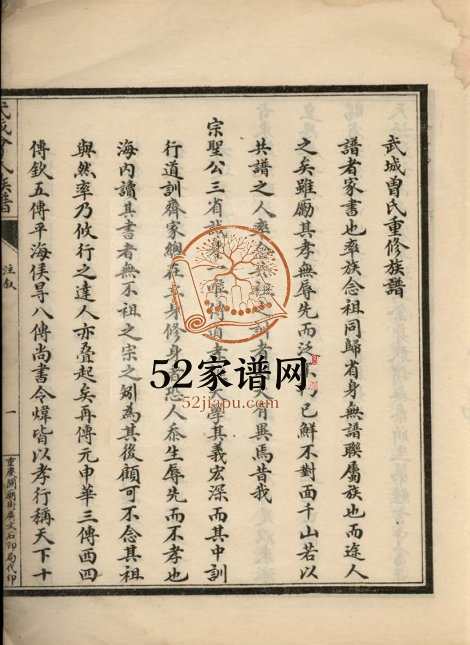 武城曾氏重修族譜
譜者家書也率族念祖同歸省身無譜聯屬族也而途人
之矣雖勵其孝無辱先而泛 已鮮不對面千山若以
共譜之人率念 祖 訓者 有異焉昔我
宗聖公三省 學其義宏深而其中訓
行道訓齋家總在 身修身 恐人忝生辱先而不孝也
海內讀其書者無不祖之宗之矧為其後顧可不念其祖
與然率乃攸行之達人亦叠起矣再傳元申華三傳西四
傳欽五傳平海侯㝷八傳尚書令煒皆以孝行稱天下十
武城曾氏族譜
注叙
一
重慶關廟街廣文石印局代印
52家谱网
52jiapu.com